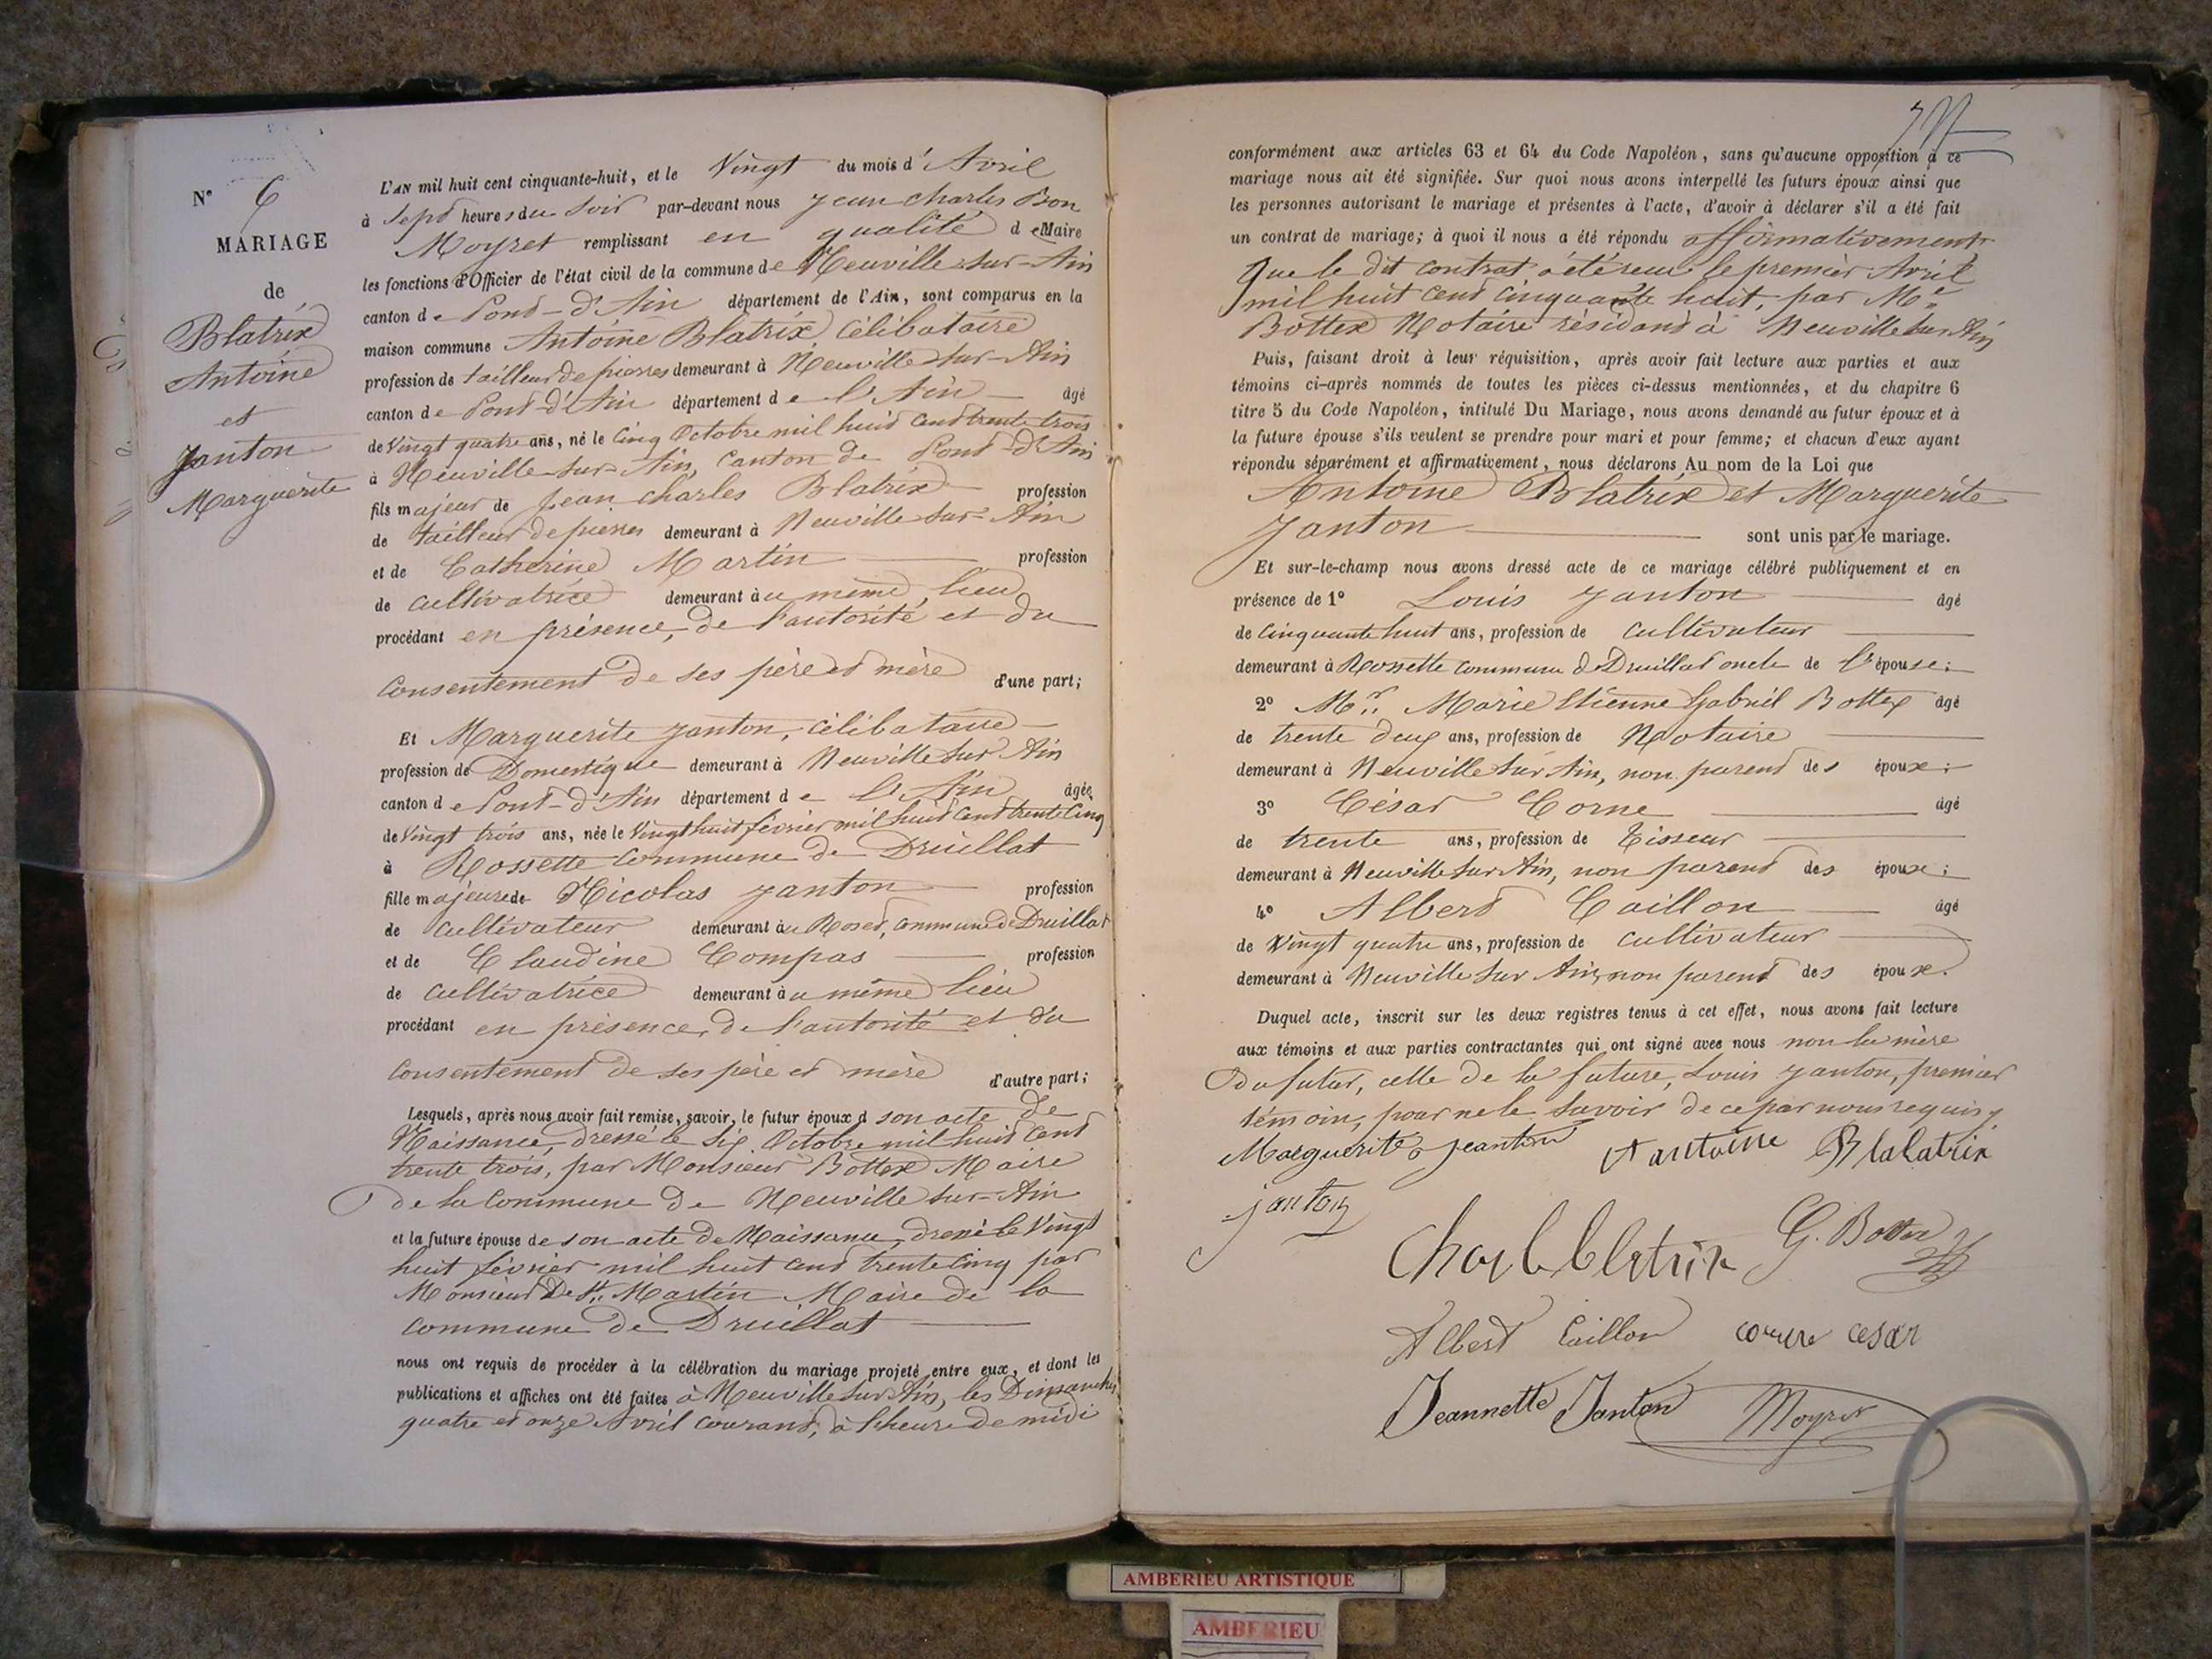 N° 6
MARIAGE
de
Blatrix
Antoine
et
Janton
Marguerite
L'AN mil huit cent cinquante-huit, et le Vingt du mois d'Avril
à Sept heures du Soir par-devant nous Jean Charles Bon
Moyret remplissant en qualité de Maire
les fonctions d'Officier de l'état civil de la commune de Neuville-sur-Ain
canton de Pont-d'Ain département de l'Ain, sont comparus en la
maison commune Antoine Blatrix, Célibataire
profession de tailleur de pierres demeurant à Neuville-sur-Ain
canton de Pont-d'Ain département de l'Ain âgé
de Vingt quatre ans, né le Cinq Octobre mil huit cent trente trois
à Neuville-sur-Ain, Canton de Pont-d'Ain
fils majeur de Jean Charles Blatrix profession
de tailleur de pierres demeurant à Neuville-sur-Ain
et de Catherine Martin profession
de cultivatrice demeurant àu même lieu
procédant en présence, de l'autorité et du
Consentement de ses père et mère d'une part;
Et Marguerite Janton, Célibataire
profession de Domestique demeurant à Neuville sur Ain
canton de Pont-d'Ain département de l'Ain âgée
de Vingt trois ans, née le Vingt huit février mil huit cent trente cinq
à Rossette Commune de Druillat
fille majeure de Nicolas Janton profession
de Cultivateur demeurant àu Roset, commune de Druillat
et de Claudine Compas profession
de cultivatrice demeurant àu même lieu
procédant en présence, de l'autorité et du
Consentement de ses père et mère d'autre part;
Lesquels, après nous avoir fait remise, savoir, le futur époux d son acte de
Naissance, dressé le Six Octobre mil huit Cent
trente trois, par Monsieur Bottex Maire
de la Commune de Neuville-sur-Ain
et la future épouse de son acte de Naissance, dressé le Vingt
huit février mil huit cent trente cinq par
Monsieur De St. Martin Maire de la
Commune de Druillat
nous ont requis de procéder à la célébration du mariage projeté entre eux, et dont les
publications et affiches ont été faites à Neuville sur Ain, les Dimanches
quatre et onze Avril courant, à l'heure de midi
conformément aux articles 63 et 64 du Code Napoléon, sans qu'aucune opposition à ce
mariage nous ait été signifiée. Sur quoi nous avons interpellé les futurs époux ainsi que
les personnes autorisant le mariage et présentes à l'acte, d'avoir à déclarer s'il a été fait
un contrat de mariage; à quoi il nous a été répondu affirmativement
Que le dit contrat a été reçu le premier Avril
mil huit cent cinquante huit, par Me
Bottex Notaire résidant à Neuville sur Ain
Puis, faisant droit à leur réquisition, après avoir fait lecture aux parties et aux
témoins ci-après nommés de toutes les pièces ci-dessus mentionnées, et du chapitre 6
titre 5 du Code Napoléon, intitulé Du Mariage, nous avons demandé au futur époux et à
la future épouse s'ils veulent se prendre pour mari et pour femme; et chacun d'eux ayant
répondu séparément et affirmativement, nous déclarons Au nom de la Loi que
Antoine Blatrix et Marguerite
Janton sont unis par le mariage.
Et sur-le-champ nous avons dressé acte de ce mariage célébré publiquement et en
présence de 1° Louis Janton âgé
de Cinquante huit ans, profession de Cultivateur
demeurant à Rossette commune de Druillat oncle de l'épouse;
2° Mr. Marie Etienne Gabriel Bottex âgé
de trente deux ans, profession de Notaire
demeurant à Neuville sur Ain, non parent des époux;
3° César Corne âgé
de trente ans, profession de Tisseur
demeurant à Neuville sur Ain, non parent des époux;
4° Albert Caillon âgé
de Vingt quatre ans, profession de Cultivateur
demeurant à Neuville sur Ain, non parent des époux.
Duquel acte, inscrit sur les deux registres tenus à cet effet, nous avons fait lecture
aux témoins et aux parties contractantes qui ont signé avec nous non la mère
du futur, celle de la future, Louis Janton, premier
témoin, pour ne le savoir de ce par nous requis
Marguerite Jeanton Antoine Blalatrix
janton
Charle blatrix G. Bottex
Albert Caillon corne cesar
Jeannette Janton Moyret
AMBERIEU ARTISTIQUE
AMBERIEU